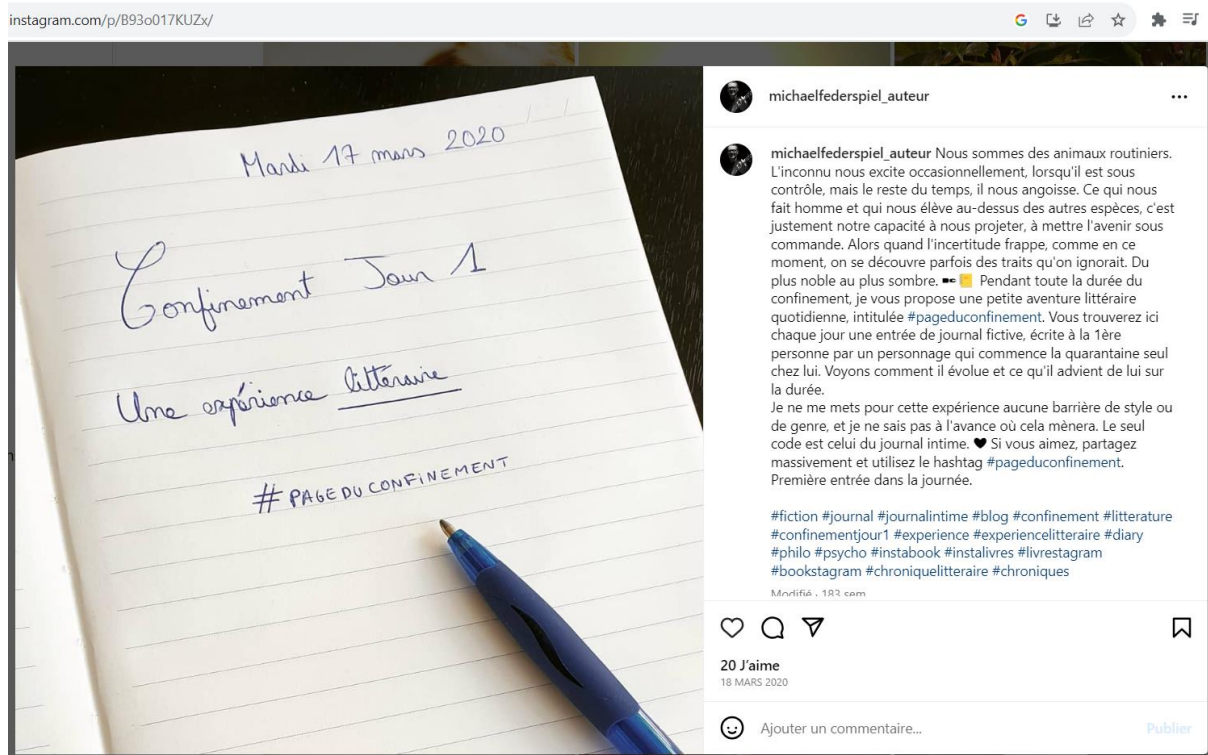 instagram.com/p/B93o017KUZx/
Mardi 17 mars 2020
Confinement Jour 1
Une expérience littéraire
#PAGEDUCONFINEMENT
michaelfederspiel_auteur
michaelfederspiel_auteur Nous sommes des animaux routiniers.
L'inconnu nous excite occasionnellement, lorsqu'il est sous
contrôle, mais le reste du temps, il nous angoisse. Ce qui nous
fait homme et qui nous élève au-dessus des autres espèces, c'est
justement notre capacité à nous projeter, à mettre l'avenir sous
commande. Alors quand l'incertitude frappe, comme en ce
moment, on se découvre parfois des traits qu'on ignorait. Du
plus noble au plus sombre. ✒️📒 Pendant toute la durée du
confinement, je vous propose une petite aventure littéraire
quotidienne, intitulée #pageduconfinement. Vous trouverez ici
chaque jour une entrée de journal fictive, écrite à la 1ère
personne par un personnage qui commence la quarantaine seul
chez lui. Voyons comment il évolue et ce qu'il advient de lui sur
la durée.
Je ne me mets pour cette expérience aucune barrière de style ou
de genre, et je ne sais pas à l'avance où cela mènera. Le seul
code est celui du journal intime. 🖤 Si vous aimez, partagez
massivement et utilisez le hashtag #pageduconfinement.
Première entrée dans la journée.
#fiction #journal #journalintime #blog #confinement #litterature
#confinementjour1 #experience #experiencelitteraire #diary
#philo #psycho #instabook #instalivres #livrestagram
#bookstagram #chroniquelitteraire #chroniques
Modifié · 183 sem
20 J'aime
18 MARS 2020
Ajouter un commentaire...
Publier